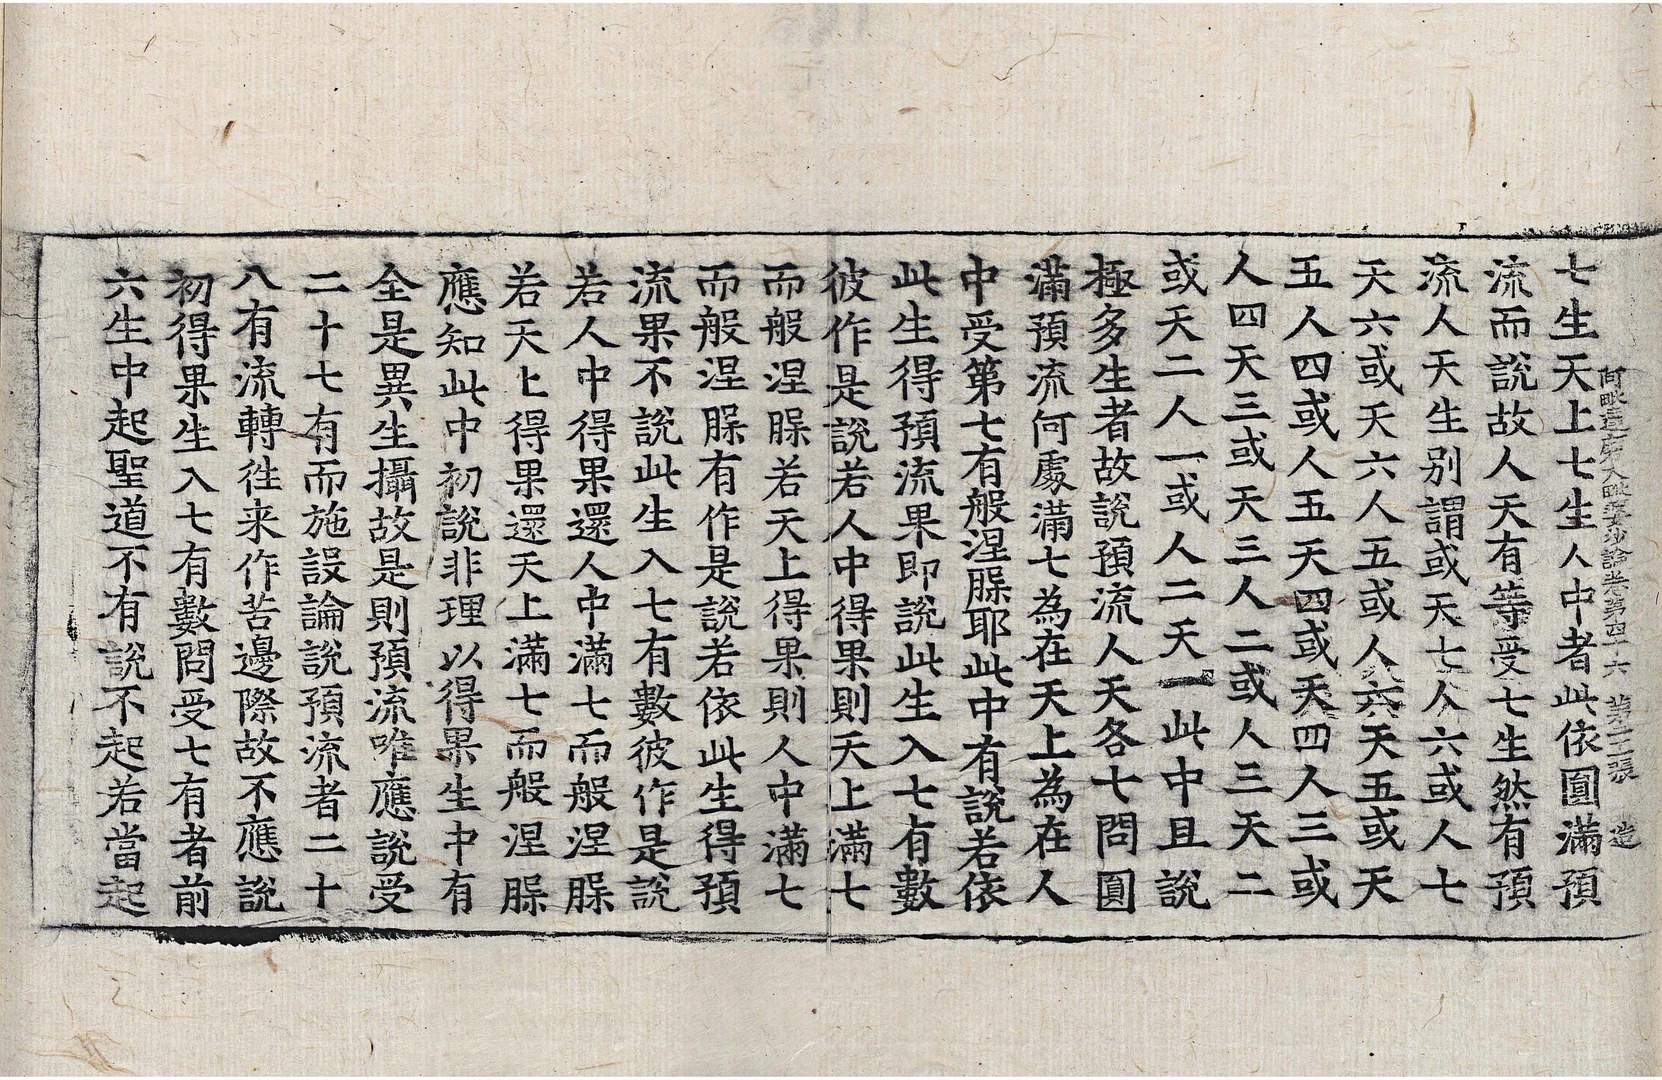 阿毗達磨大毗婆沙論卷第四十六 第十二張 造
七生天上七生人中者此依圓滿預
流而說故人天有等受七生然有預
流人天生別謂或天七人六或人七
天六或天六人五或人六天五或天
五人四或人五天四或天四人三或
人四天三或天三人二或人三天二
或天二人一或人二天一此中且說
極多生者故說預流人天各七問圓
滿預流何處滿七為在天上為在人
中受第七有般涅槃耶此中有說若依
此生得預流果即說此生入七有數
彼作是說若人中得果則天上滿七
而般涅槃若天上得果則人中滿七
而般涅槃有作是說若依此生得預
流果不說此生入七有數彼作是說
若人中得果還人中滿七而般涅槃
若天上得果還天上滿七而般涅槃
應知此中初說非理以得果生中有
全是異生攝故是則預流唯應說受
二十七有而施設論說預流者二十
八有流轉徃来作苦邊際故不應說
初得果生入七有數問受七有者前
六生中起聖道不有說不起若當起